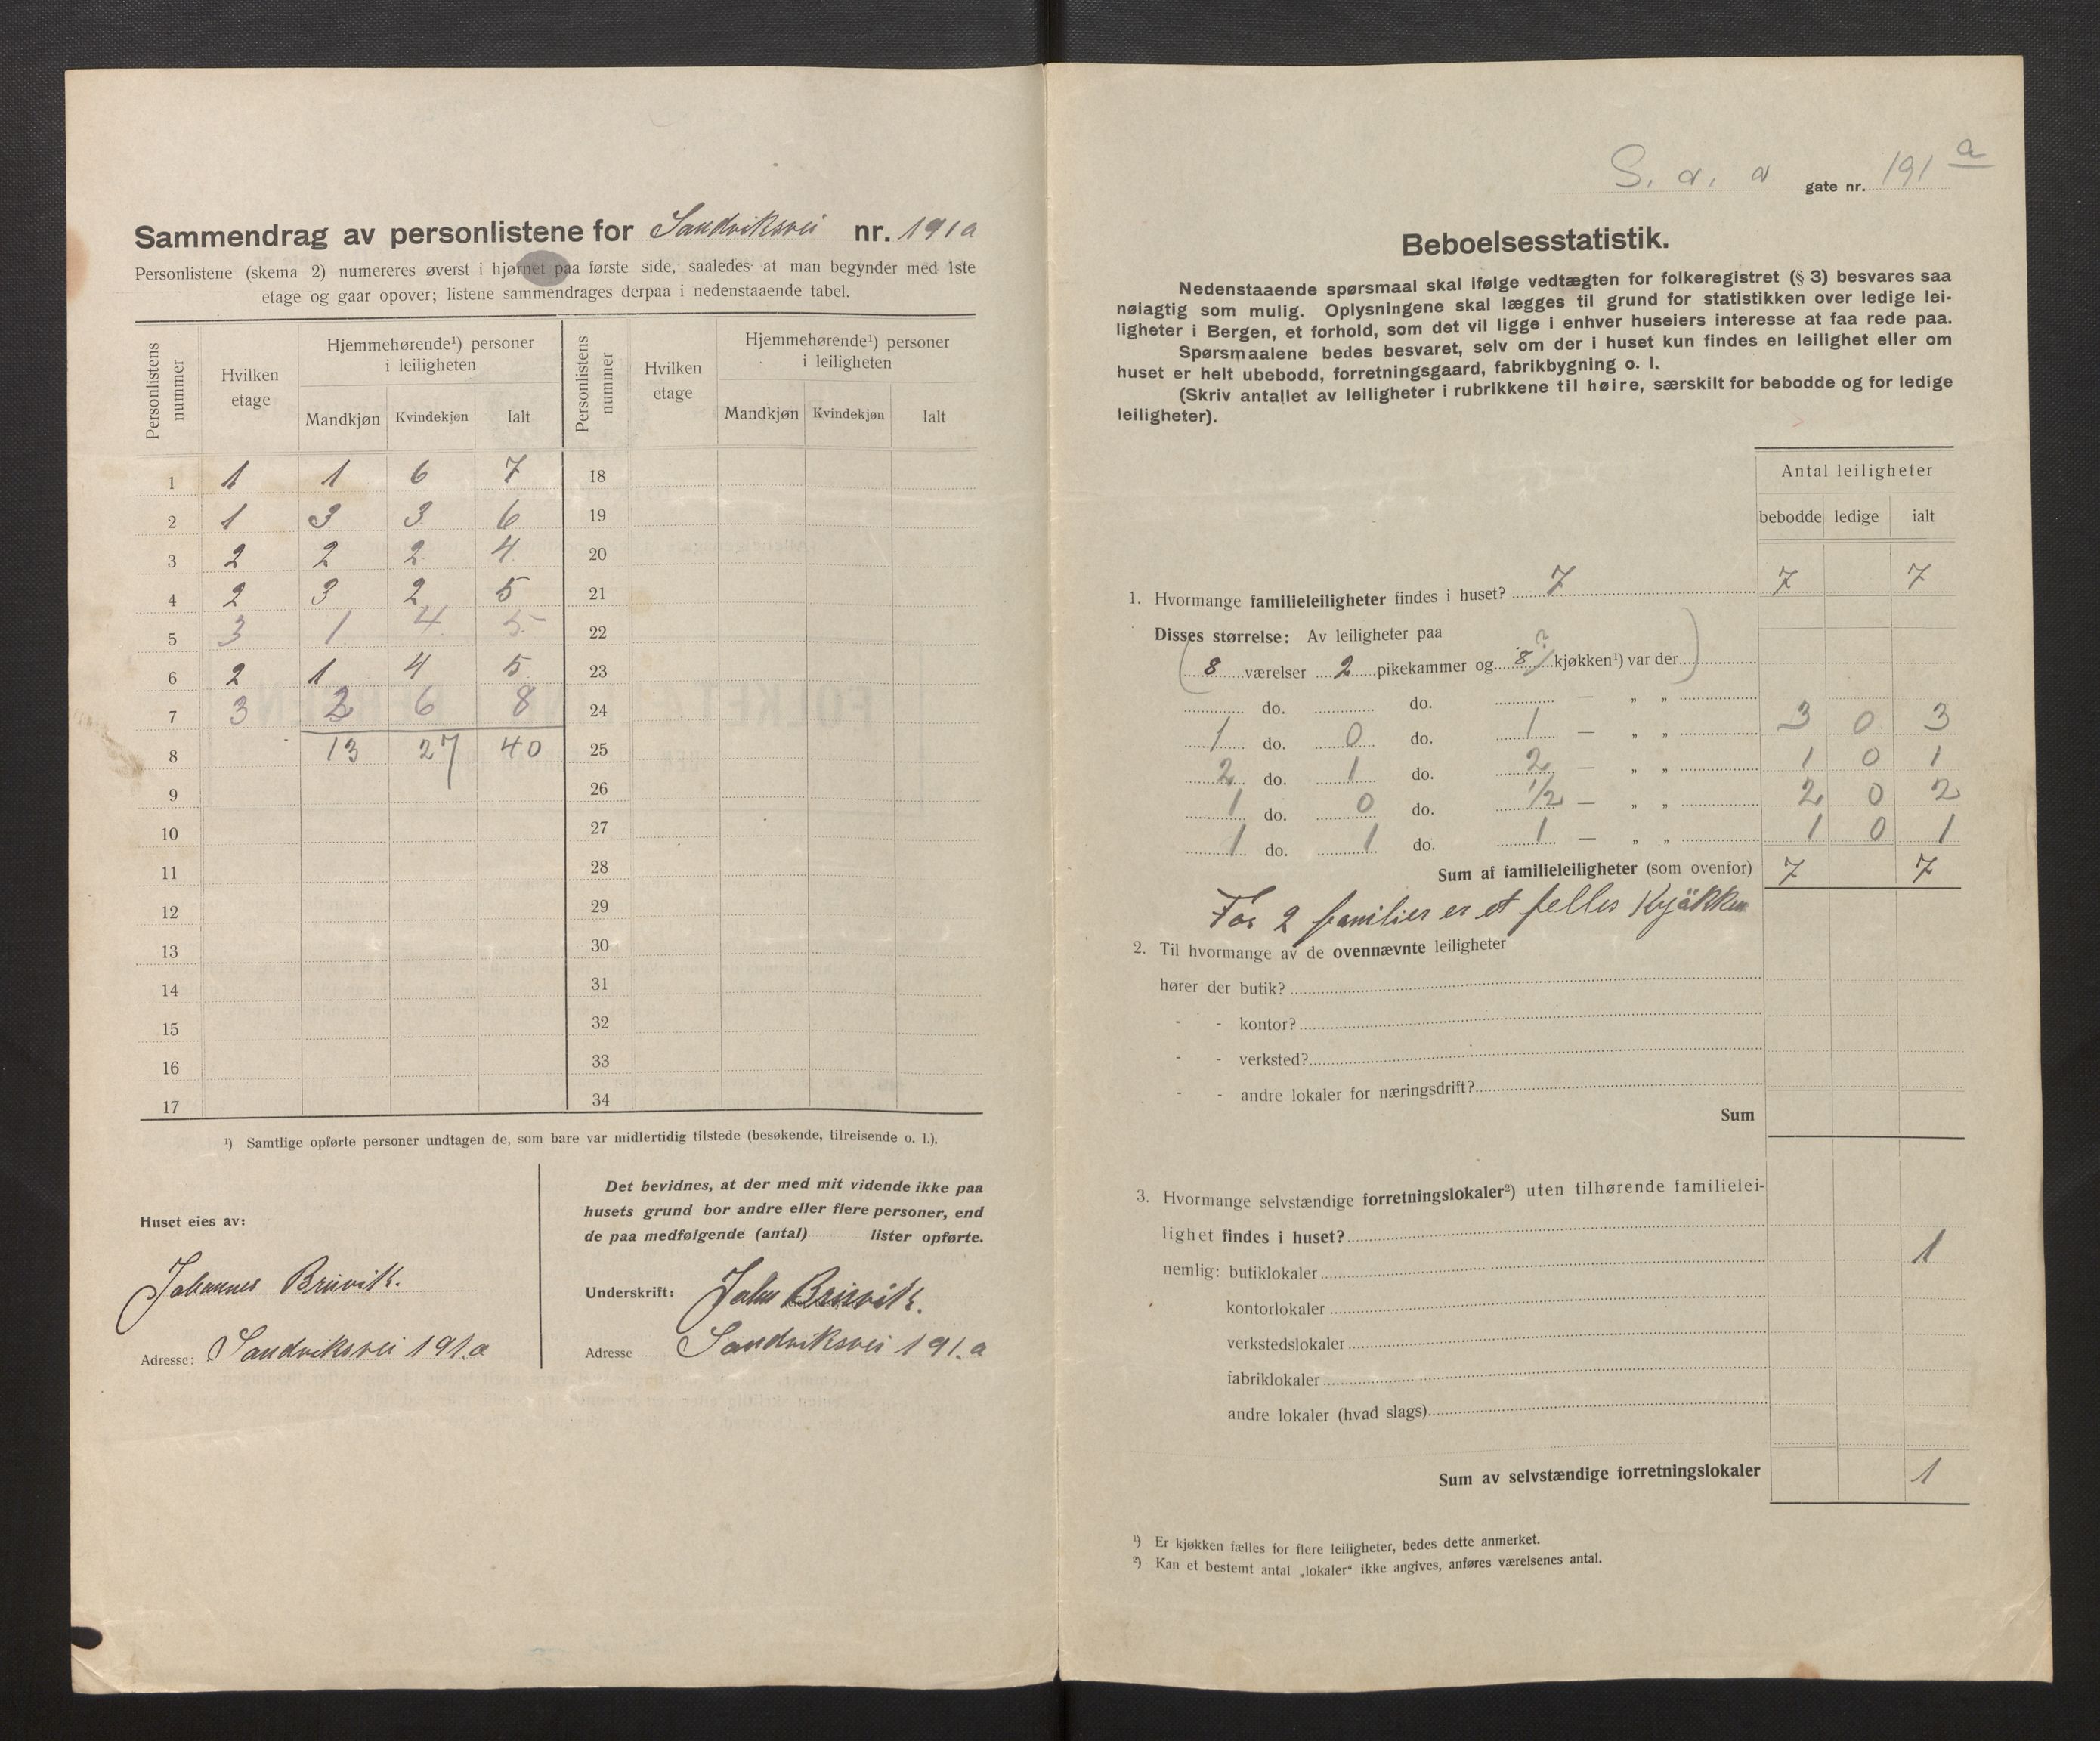 Sammendrag av personlistene for Sandviksvei nr. 191a
Personlistene (skema 2) numereres øverst i hjørnet paa første side, saaledes at man begynder med 1ste
etage og gaar opover; listene sammendrages derpaa i nedenstaaende tabel.
Personlistens nummer | Hvilken etage | Hjemmehørende¹) personer i leiligheten | Personlistens nummer | Hvilken etage | Hjemmehørende¹) personer i leiligheten
Mandkjøn | Kvindekjøn | Ialt | Mandkjøn | Kvindekjøn | Ialt
1 | 1 | 1 | 6 | 7 | 18
2 | 1 | 3 | 3 | 6 | 19
3 | 2 | 2 | 2 | 4 | 20
4 | 2 | 3 | 2 | 5 | 21
5 | 3 | 1 | 4 | 5 | 22
6 | 2 | 1 | 4 | 5 | 23
7 | 3 | 2 | 6 | 8 | 24
8 | 13 | 27 | 40 | 25
9 | 26
10 | 27
11 | 28
12 | 29
13 | 30
14 | 31
15 | 32
16 | 33
17 | 34
¹) Samtlige opførte personer undtagen de, som bare var midlertidig tilstede (besøkende, tilreisende o. l.).
Huset eies av:
Johannes Brüvik.
Adresse: Sandviksvei 191.a
Det bevidnes, at der med mit vidende ikke paa
husets grund bor andre eller flere personer, end
de paa medfølgende (antal) lister opførte.
Underskrift: Johs Brüvik.
Adresse Sandviksvei 191.a
S. v. v gate nr. 191 a
Beboelsesstatistik.
Nedenstaaende spørsmaal skal ifølge vedtægten for folkeregistret (§ 3) besvares saa
nøiagtig som mulig. Oplysningene skal lægges til grund for statistikken over ledige lei-
ligheter i Bergen, et forhold, som det vil ligge i enhver huseiers interesse at faa rede paa.
Spørsmaalene bedes besvaret, selv om der i huset kun findes en leilighet eller om
huset er helt ubebodd, forretningsgaard, fabrikbygning o. l.
(Skriv antallet av leiligheter i rubrikkene til høire, særskilt for bebodde og for ledige
leiligheter).
Antal leiligheter
bebodde | ledige | ialt
1. Hvormange familieleiligheter findes i huset? 7 | 7 | 7
Disses størrelse: Av leiligheter paa
( 8 værelser 2 pikekammer og 8 kjøkken¹) var der )
do. do. — „ „
1 do. 0 do. 1 — „ „ 3 | 0 | 3
2 do. 1 do. 2 — „ „ 1 | 0 | 1
1 do. 0 do. 1/2 — „ „ 2 | 0 | 2
1 do. 1 do. 1 — „ „ 1 | 0 | 1
Sum af familieleiligheter (som ovenfor) 7 | 7
For 2 familier er et felles Kjökken
2. Til hvormange av de ovennævnte leiligheter
hører der butik?
- - kontor?
- - verksted?
- - andre lokaler for næringsdrift?
Sum
3. Hvormange selvstændige forretningslokaler²) uten tilhørende familielei-
lighet findes i huset?
nemlig: butiklokaler 1
kontorlokaler
verkstedslokaler
fabriklokaler
andre lokaler (hvad slags)
Sum av selvstændige forretningslokaler 1
¹) Er kjøkken fælles for flere leiligheter, bedes dette anmerket.
²) Kan et bestemt antal „lokaler“ ikke angives, anføres værelsenes antal.